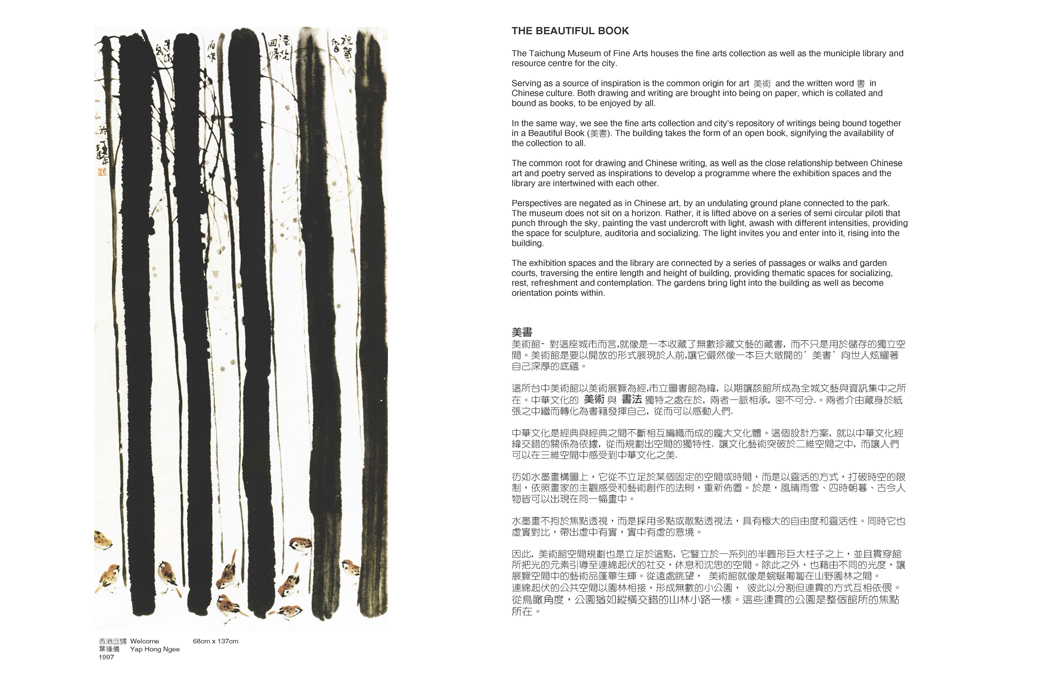 祝賀
香港
回歸
THE BEAUTIFUL BOOK
The Taichung Museum of Fine Arts houses the fine arts collection as well as the municiple library and
resource centre for the city.
Serving as a source of inspiration is the common origin for art 美術 and the written word 書 in
Chinese culture. Both drawing and writing are brought into being on paper, which is collated and
bound as books, to be enjoyed by all.
In the same way, we see the fine arts collection and city's repository of writings being bound together
in a Beautiful Book (美書). The building takes the form of an open book, signifying the availability of
the collection to all.
The common root for drawing and Chinese writing, as well as the close relationship between Chinese
art and poetry served as inspirations to develop a programme where the exhibition spaces and the
library are intertwined with each other.
Perspectives are negated as in Chinese art, by an undulating ground plane connected to the park.
The museum does not sit on a horizon. Rather, it is lifted above on a series of semi circular piloti that
punch through the sky, painting the vast undercroft with light, awash with different intensities, providing
the space for sculpture, auditoria and socializing. The light invites you and enter into it, rising into the
building.
The exhibition spaces and the library are connected by a series of passages or walks and garden
courts, traversing the entire length and height of building, providing thematic spaces for socializing,
rest, refreshment and contemplation. The gardens bring light into the building as well as become
orientation points within.
美書
美術館- 對這座城市而言,就像是一本收藏了無數珍藏文藝的藏書, 而不只是用於儲存的獨立空
間。美術館是要以開放的形式展現於人前,讓它儼然像一本巨大敞開的’美書’向世人炫耀著
自己深厚的底蘊。
這所台中美術館以美術展覽為經,市立圖書館為緯, 以期讓該館所成為全城文藝與資訊集中之所
在。中華文化的 美術 與 書法 獨特之處在於, 兩者一脈相承, 密不可分.。兩者介由藏身於紙
張之中繼而轉化為書籍發揮自己, 從而可以感動人們.
中華文化是經典與經典之間不斷相互編織而成的龐大文化體。這個設計方案, 就以中華文化經
緯交錯的關係為依據, 從而規劃出空間的獨特性. 讓文化藝術突破於二維空間之中, 而讓人們
可以在三維空間中感受到中華文化之美.
彷如水墨畫構圖上，它從不立足於某個固定的空間或時間，而是以靈活的方式，打破時空的限
制，依照畫家的主觀感受和藝術創作的法則，重新佈置。於是，風晴雨雪、四時朝暮、古今人
物皆可以出現在同一幅畫中。
水墨畫不拘於焦點透視，而是採用多點或散點透視法，具有極大的自由度和靈活性。同時它也
虛實對比，帶出虛中有實，實中有虛的意境。
因此, 美術館空間規劃也是立足於這點, 它豎立於一系列的半圓形巨大柱子之上，並且貫穿館
所把光的元素引導至連綿起伏的社交，休息和沈思的空間。除此之外，也藉由不同的光度，讓
展覽空間中的藝術品蓬蓽生輝。從遠處眺望， 美術館就像是蜿蜒匍匐在山野園林之間。
連綿起伏的公共空間以園林相接，形成無數的小公園， 彼此以分割但連貫的方式互相依偎。
從鳥瞰角度，公園猶如縱橫交錯的山林小路一樣。這些連貫的公園是整個館所的焦點
所在。
香港回歸 Welcome 68cm x 137cm
葉逢儀 Yap Hong Ngee
1997